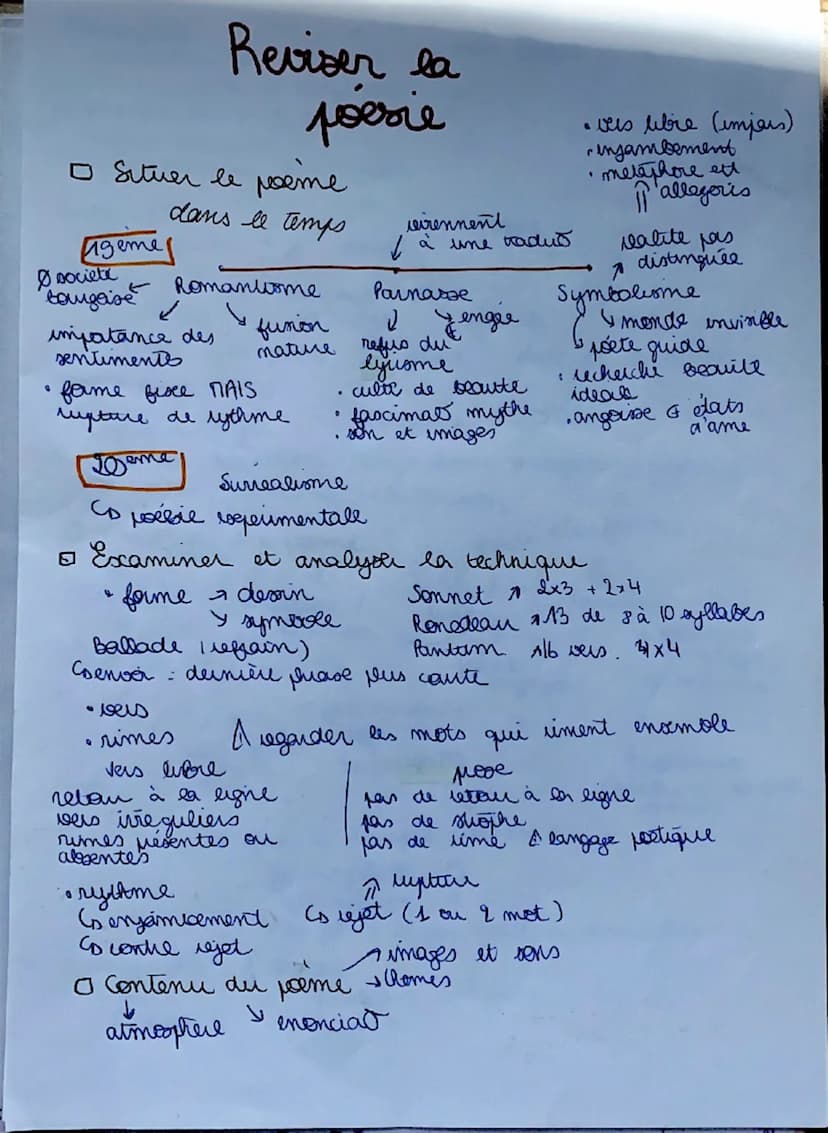 Reviser la
poésie
• vers libre (impairs)
• enjambement
• métaphore et
⇑ allégories
□ Situer le poème
dans le temps
19ème
reviennent
à une tradit°
realité pas
distinguée
Ø société
bourgoise
Romantisme
Parnasse
Symbolisme
importance des
sentiments
fusion
nature
refus du
lyrisme
engée
monde invisible
poète guide
• forme fixe MAIS
rupture de rythme
• culte de beauté
• fascinat° mythe
• son et images
• recherche beauté
idéale
• angoisse états
d'ame
20eme
Surrealisme
↳ poésie experimentale
□ Examiner et analyser la technique
• forme → dessin
↘ symbole
Sonnet ↗ 2x3 + 2x4
Ronedeau ↗ 13 de 8 à 10 syllabes
Ballade (refrain)
Pantum 16 vers. 4x4
↳ envoi : dernière phrase plus courte
• vers
• rimes
regarder les mots qui riment ensemble
vers libre
prose
retour à la ligne
pas de retour à la ligne
vers irréguliers
pas de strophe
rimes présentes ou
absentes
pas de rime
langage poétique
• rythme
⇗ rupture
↳ enjambement
↳ rejet (1 ou 2 mot)
↳ contre rejet
□ Contenu du poème
↗ images et sons
→ thèmes
↓
atmosphère
↘ enonciat°